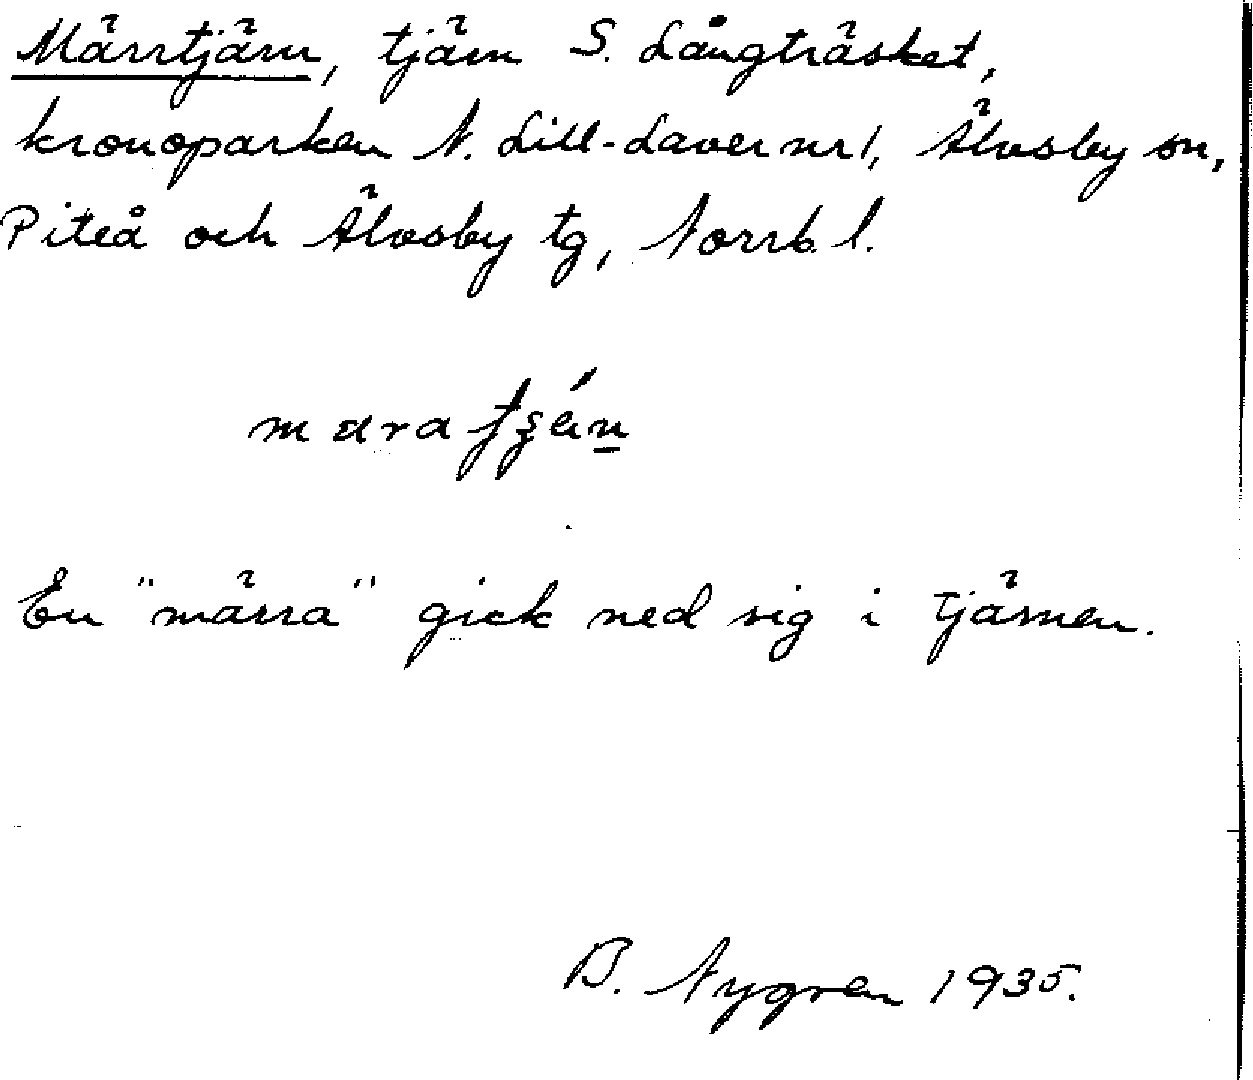 Märrtjärn, tjärn S. Långträsket,
kronoparken N. Lill-Laver nr 1, Älvsby sn,
Piteå och Älvsby tg, Norrb. l.
En "märra" gick ned sig i tjärnen.
B. Nygren 1935.